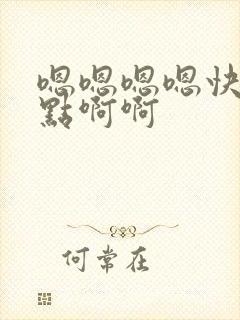 嗯嗯嗯嗯快
點啊啊
何常在